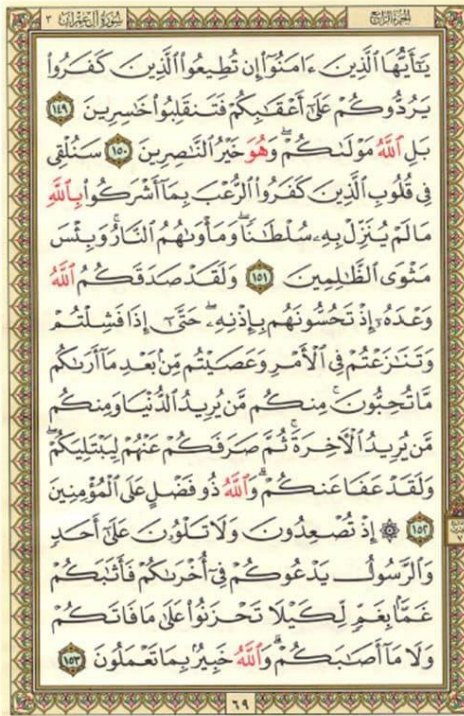 سُورَةُ آلِ عِمْرَانَ ٣
الجُزْءُ الرَّابِعُ
يَـٰٓأَيُّهَا ٱلَّذِينَ ءَامَنُوٓا۟ إِن تُطِيعُوا۟ ٱلَّذِينَ كَفَرُوا۟
يَرُدُّوكُمْ عَلَىٰٓ أَعْقَـٰبِكُمْ فَتَنقَلِبُوا۟ خَـٰسِرِينَ ١٤٩
بَلِ ٱللَّهُ مَوْلَىٰكُمْ ۖ وَهُوَ خَيْرُ ٱلنَّـٰصِرِينَ ١٥٠ سَنُلْقِى
فِى قُلُوبِ ٱلَّذِينَ كَفَرُوا۟ ٱلرُّعْبَ بِمَآ أَشْرَكُوا۟ بِٱللَّهِ
مَا لَمْ يُنَزِّلْ بِهِۦ سُلْطَـٰنًا ۖ وَمَأْوَىٰهُمُ ٱلنَّارُ ۚ وَبِئْسَ
مَثْوَى ٱلظَّـٰلِمِينَ ١٥١ وَلَقَدْ صَدَقَكُمُ ٱللَّهُ
وَعْدَهُۥٓ إِذْ تَحُسُّونَهُم بِإِذْنِهِۦ ۖ حَتَّىٰٓ إِذَا فَشِلْتُمْ
وَتَنَـٰزَعْتُمْ فِى ٱلْأَمْرِ وَعَصَيْتُم مِّنۢ بَعْدِ مَآ أَرَىٰكُم
مَّا تُحِبُّونَ ۚ مِنكُم مَّن يُرِيدُ ٱلدُّنْيَا وَمِنكُم
مَّن يُرِيدُ ٱلْـَٔاخِرَةَ ۚ ثُمَّ صَرَفَكُمْ عَنْهُمْ لِيَبْتَلِيَكُمْ ۖ
وَلَقَدْ عَفَا عَنكُمْ ۗ وَٱللَّهُ ذُو فَضْلٍ عَلَى ٱلْمُؤْمِنِينَ
١٥٢ ۞ إِذْ تُصْعِدُونَ وَلَا تَلْوُۥنَ عَلَىٰٓ أَحَدٍ
وَٱلرَّسُولُ يَدْعُوكُمْ فِىٓ أُخْرَىٰكُمْ فَأَثَـٰبَكُمْ
غَمًّۢا بِغَمٍّ لِّكَيْلَا تَحْزَنُوا۟ عَلَىٰ مَا فَاتَكُمْ
وَلَا مَآ أَصَـٰبَكُمْ ۗ وَٱللَّهُ خَبِيرٌۢ بِمَا تَعْمَلُونَ ١٥٣
٦٩